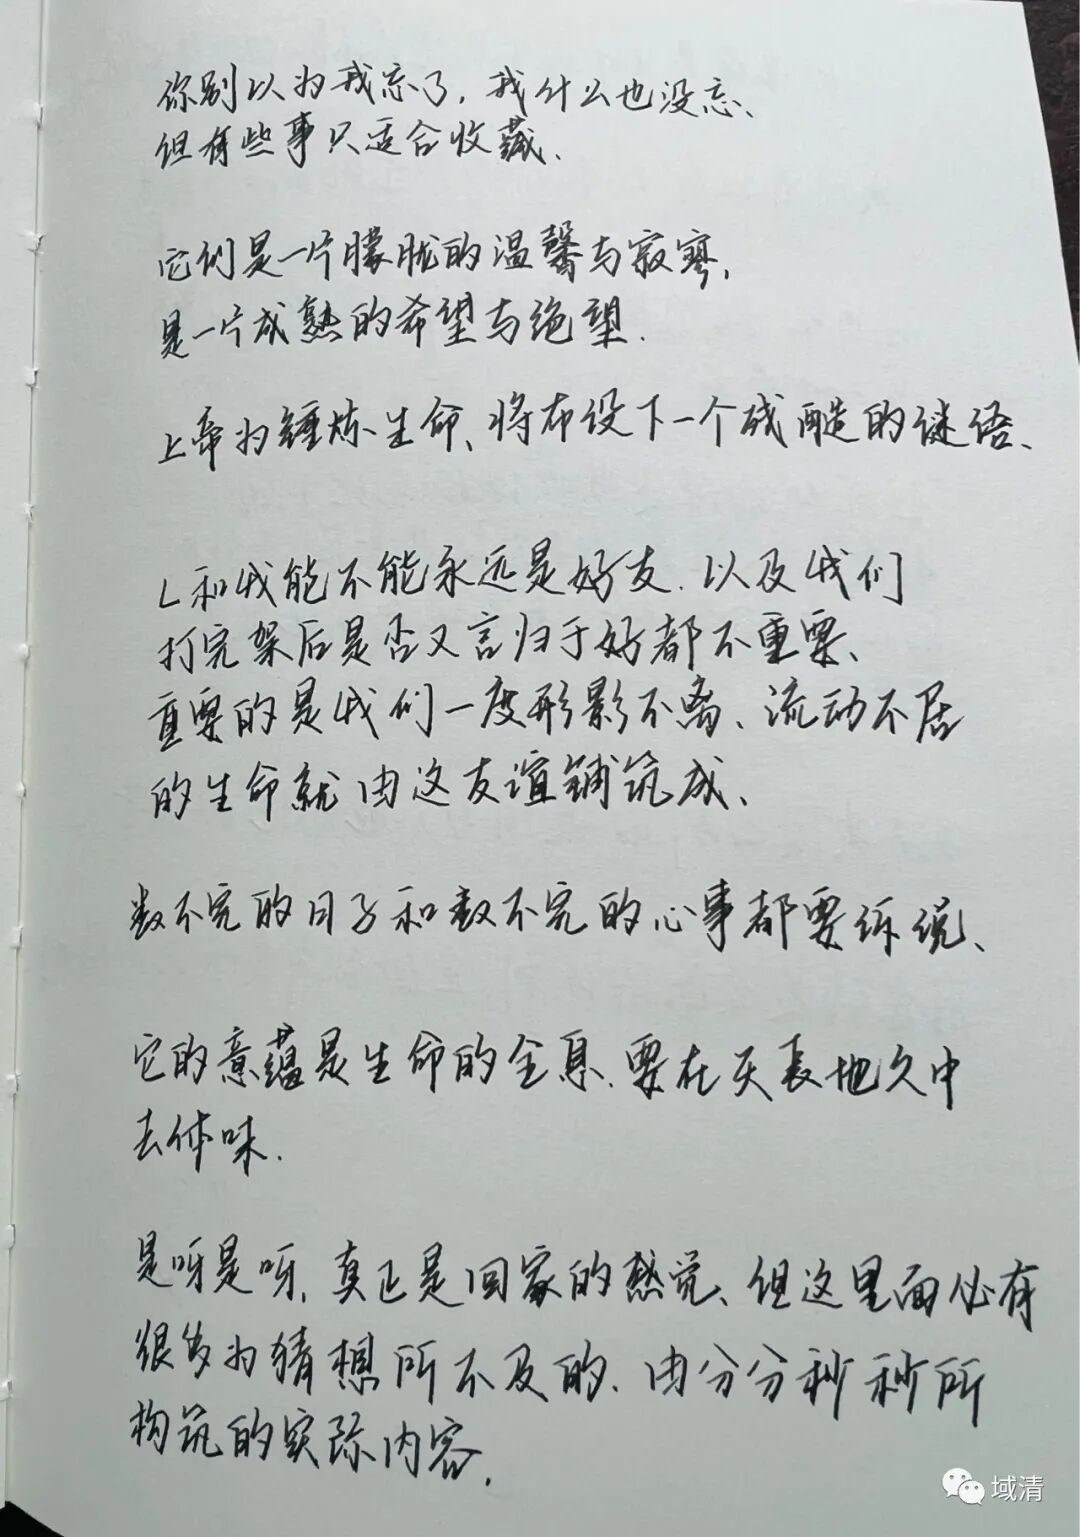 你别以为我忘了，我什么也没忘、
但有些事只适合收藏、
它们是一片朦胧的温馨与寂寥，
是一片成熟的希望与绝望．
上帝为锤炼生命、将布设下一个残酷的谜语、
L和我能不能永远是好友．以及我们
打完架后是否又言归于好都不重要、
重要的是我们一度形影不离、流动不居
的生命就由这友谊铺筑成、
数不完的日子和数不完的心事都要诉说、
它的意蕴是生命的全息．要在天长地久中
去体味．
是呀是呀，真正是回家的感觉、但这里面必有
很多为猜想所不及的、由分分秒秒所
构筑的实际内容，
域清